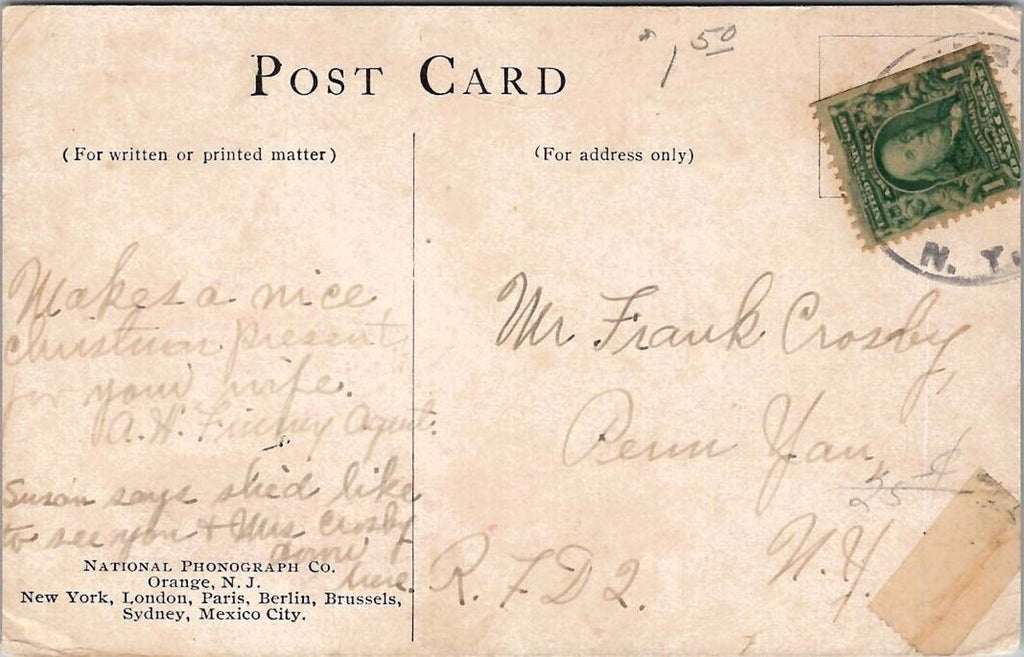 POST CARD
$1.50
(For written or printed matter)
(For address only)
1
1
N. Y.
Makes a nice
christmas present
for your wife.
A. H. Finney Agent.
Susan says she'd like
to see you + Mrs Crosby
down
here.
Mr Frank Crosby,
Penn Yan,
N.Y.
R. F. D 2.
25
NATIONAL PHONOGRAPH CO.
Orange, N. J.
New York, London, Paris, Berlin, Brussels,
Sydney, Mexico City.